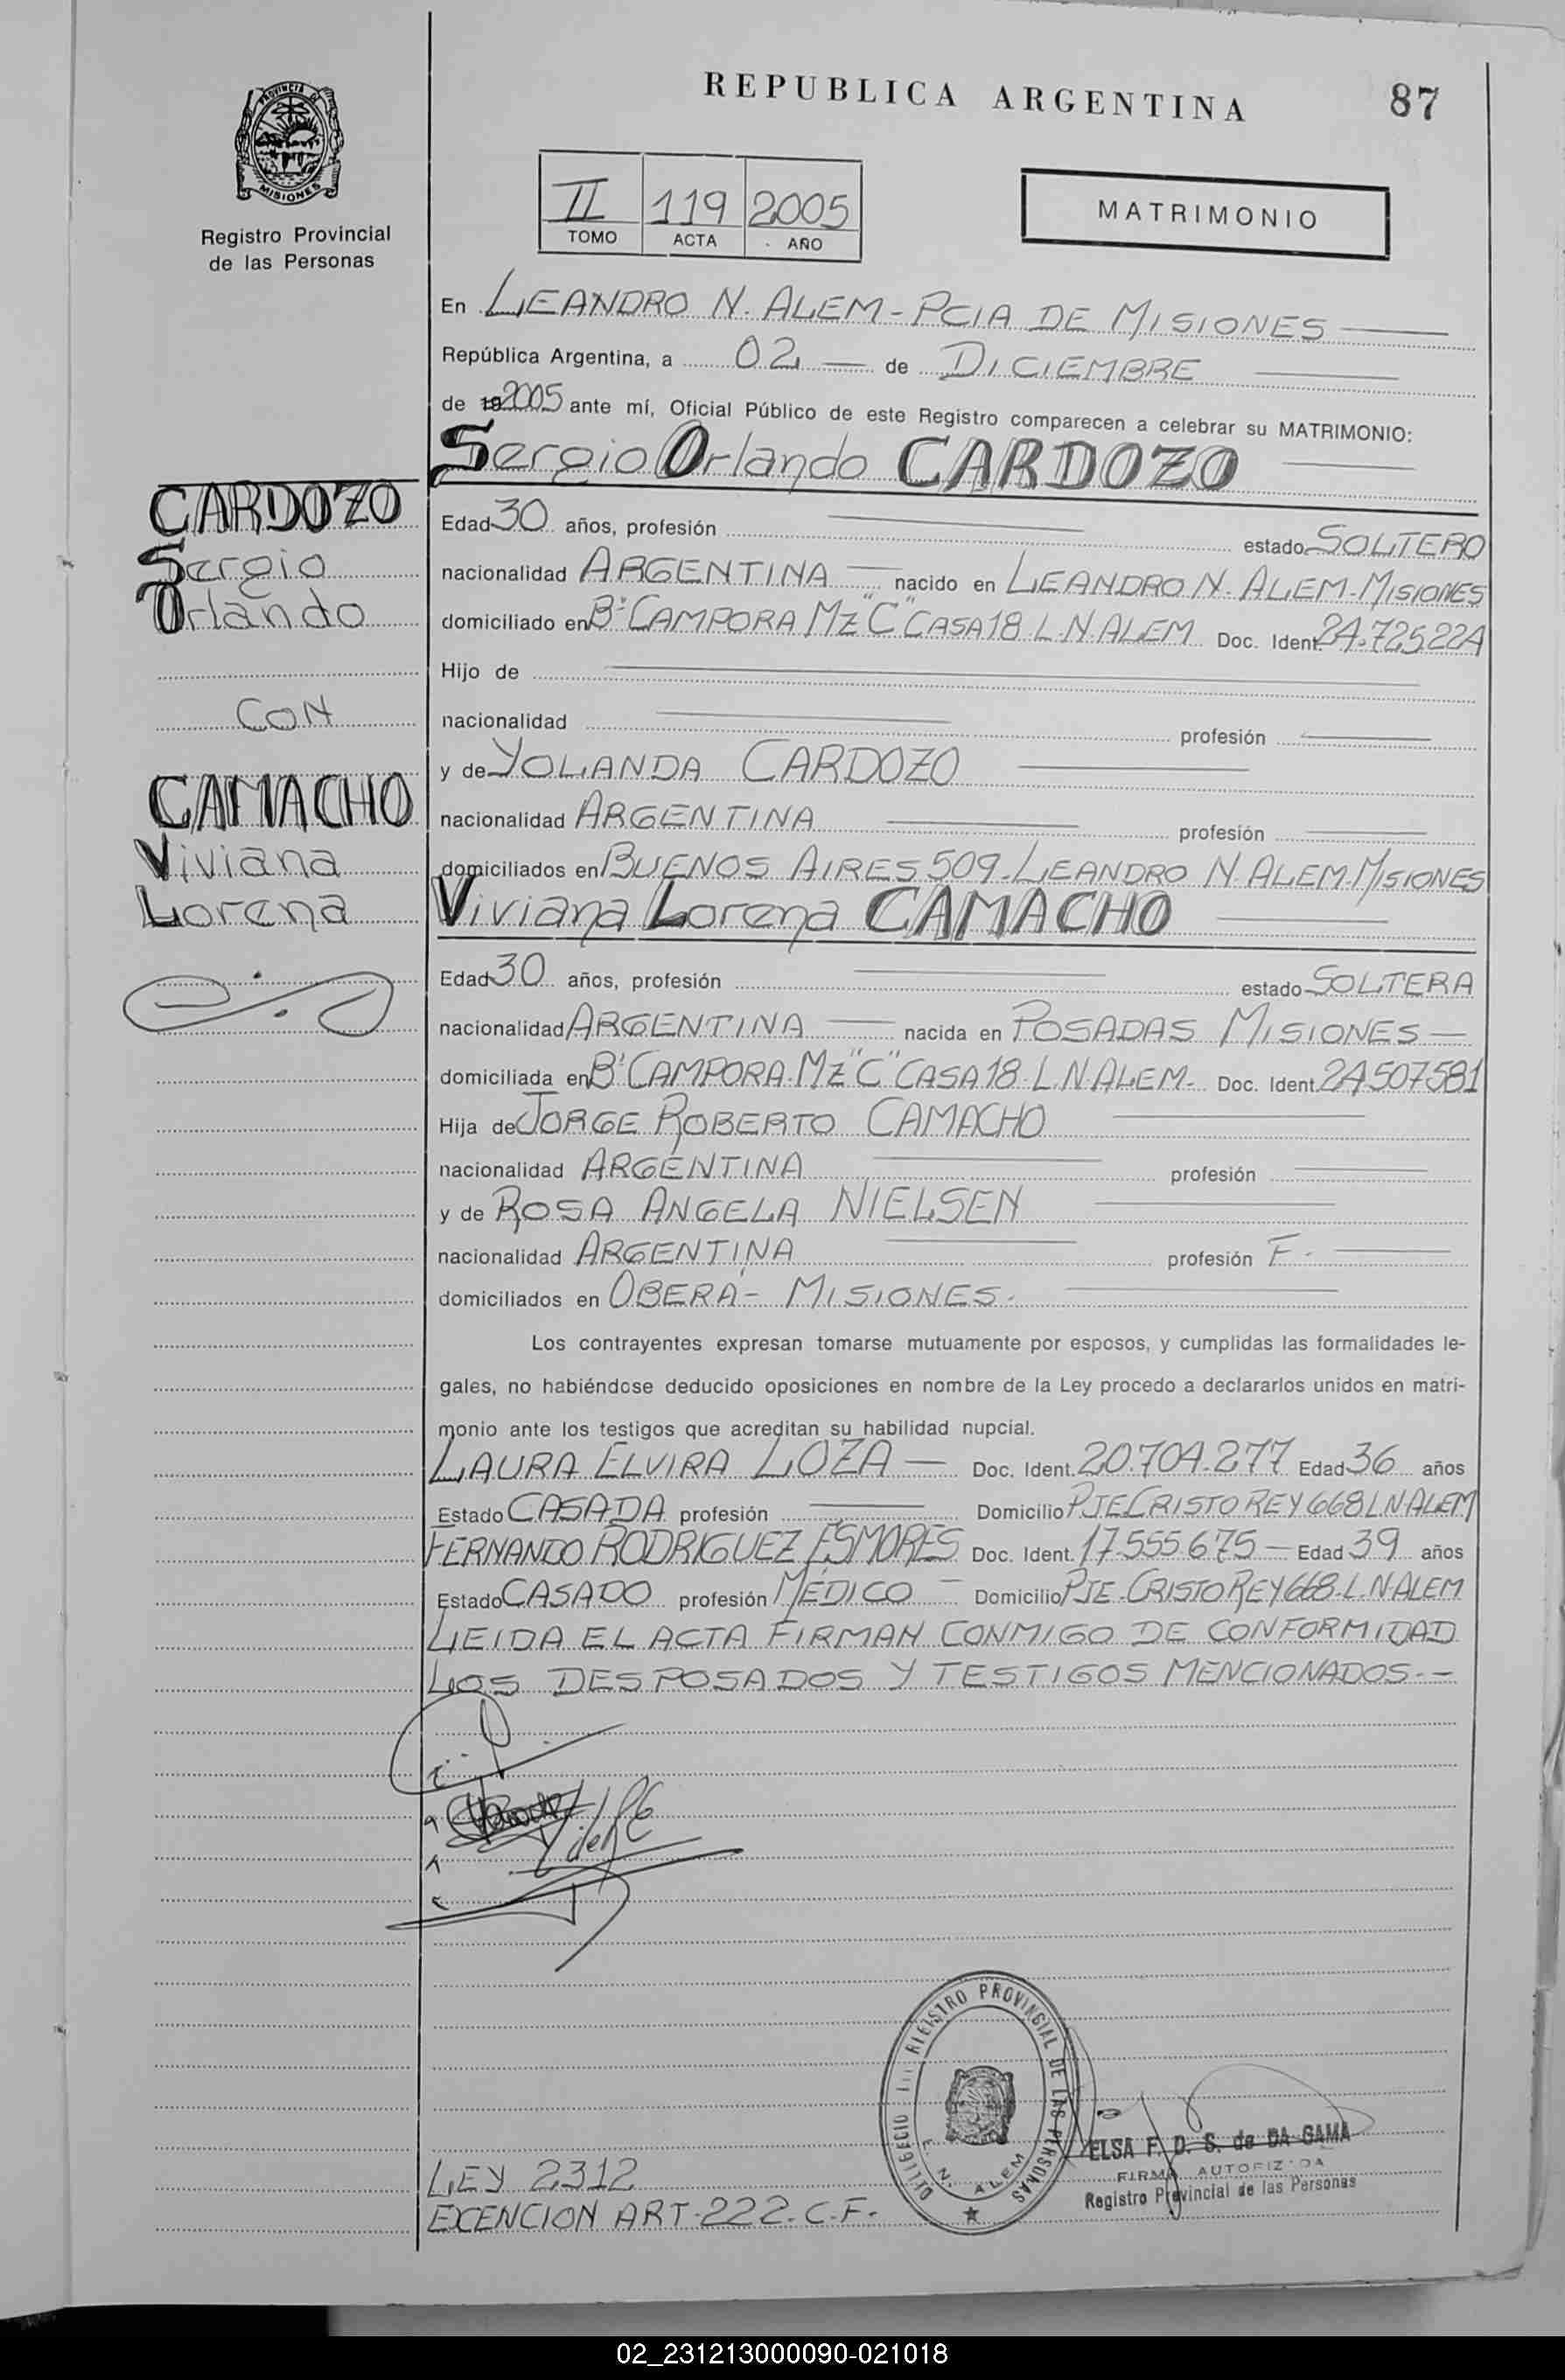 REPUBLICA ARGENTINA
87
PROVINCIA DE
MISIONES
Registro Provincial
de las Personas
II 119 2005
TOMO ACTA AÑO
MATRIMONIO
En LEANDRO N. ALEM - PCIA DE MISIONES
República Argentina, a 02 de DICIEMBRE
de 2005 ante mí, Oficial Público de este Registro comparecen a celebrar su MATRIMONIO:
Sergio Orlando CARDOZO
CARDOZO
Sergio
Orlando
CON
CAMACHO
Viviana
Lorena
Edad 30 años, profesión estado SOLTERO
nacionalidad ARGENTINA nacido en LEANDRO N. ALEM-MISIONES
domiciliado en B° CAMPORA MZ "C" CASA 18 L.N ALEM Doc. Ident. 24.725.224
Hijo de
nacionalidad profesión
y de YOLANDA CARDOZO
nacionalidad ARGENTINA profesión
domiciliados en BUENOS AIRES 509-LEANDRO N. ALEM. MISIONES
Viviana Lorena CAMACHO
Edad 30 años, profesión estado SOLTERA
nacionalidad ARGENTINA nacida en POSADAS MISIONES
domiciliada en B° CAMPORA. MZ "C" CASA 18. L.N. ALEM- Doc. Ident. 24507581
Hija de JORGE ROBERTO CAMACHO
nacionalidad ARGENTINA profesión
y de ROSA ANGELA NIELSEN
nacionalidad ARGENTINA profesión F.
domiciliados en OBERÁ - MISIONES.
Los contrayentes expresan tomarse mutuamente por esposos, y cumplidas las formalidades le-
gales, no habiéndose deducido oposiciones en nombre de la Ley procedo a declararlos unidos en matri-
monio ante los testigos que acreditan su habilidad nupcial.
LAURA ELVIRA LOZA — Doc. Ident. 20.704.277 Edad 36 años
Estado CASADA profesión Domicilio PJE CRISTO REY 668 L N ALEM
FERNANDO RODRIGUEZ ESMORES Doc. Ident. 17.555.675 — Edad 39 años
Estado CASADO profesión MÉDICO — Domicilio PJE. CRISTO REY 668. L.N. ALEM
LEIDA EL ACTA FIRMAN CONMIGO DE CONFORMIDAD
LOS DESPOSADOS Y TESTIGOS MENCIONADOS.-
REGISTRO PROVINCIAL DE LAS PERSONAS
L. N. ALEM
ELSA F. D. S. de DA GAMA
FIRMA AUTORIZADA
Registro Provincial de las Personas
LEY 2312
EXENCION ART. 222. C.F.
02_231213000090-021018